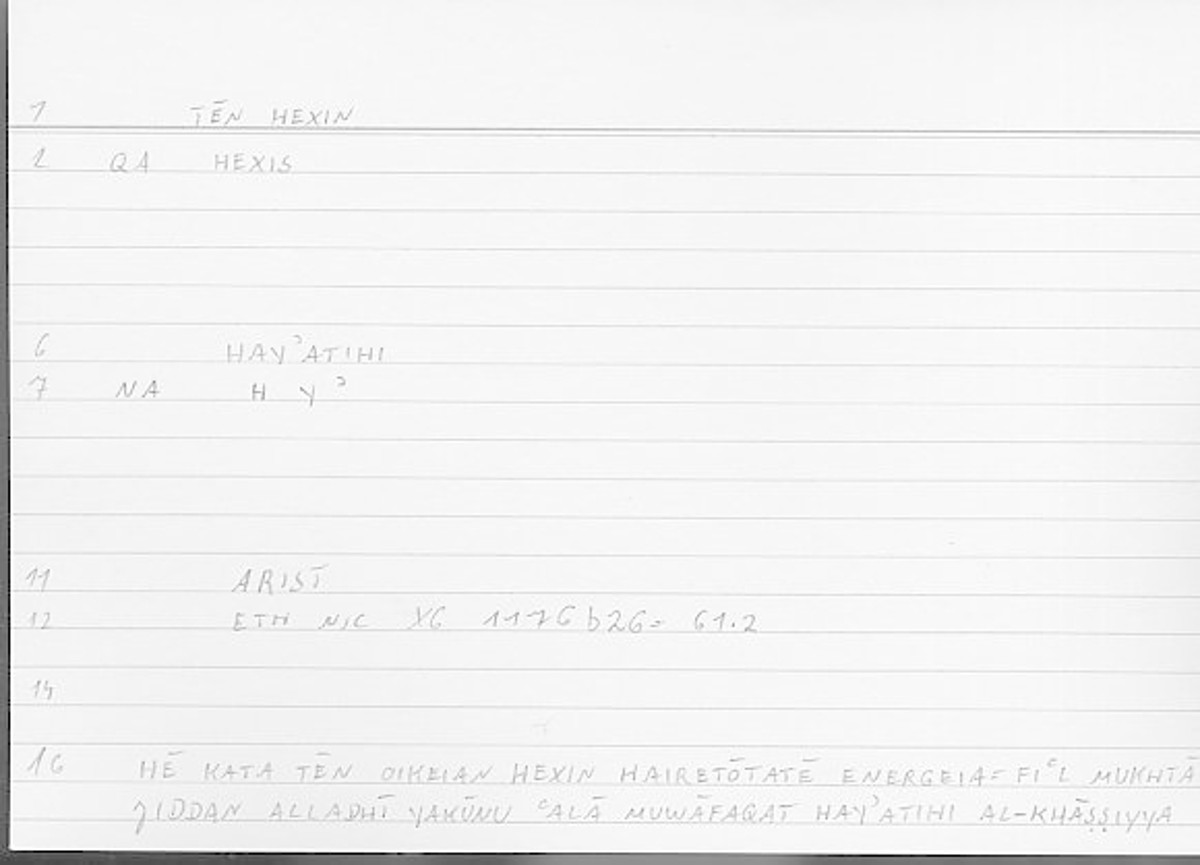 1 TĒN HEXIN
2 QA HEXIS
6 HAYʾATIHI
7 NA H Y ʾ
11 ARIST
12 ETH NIC X6 1176b26= 61.2
14
16 HĒ KATA TĒN OIKEIAN HEXIN HAIRETŌTATĒ ENERGEIA= FIʿL MUKHTĀ
JIDDAN ALLADHĪ YAKŪNU ʿALĀ MUWĀFAQAT HAYʾATIHI AL-KHĀṢṢIYYA